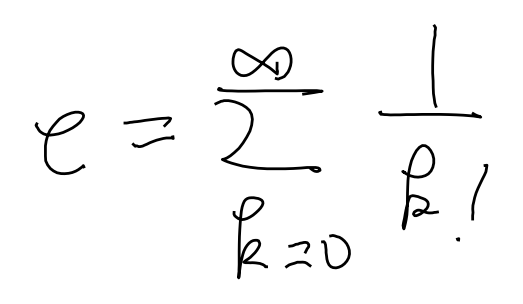 e = ∞∑k=0 1/k!